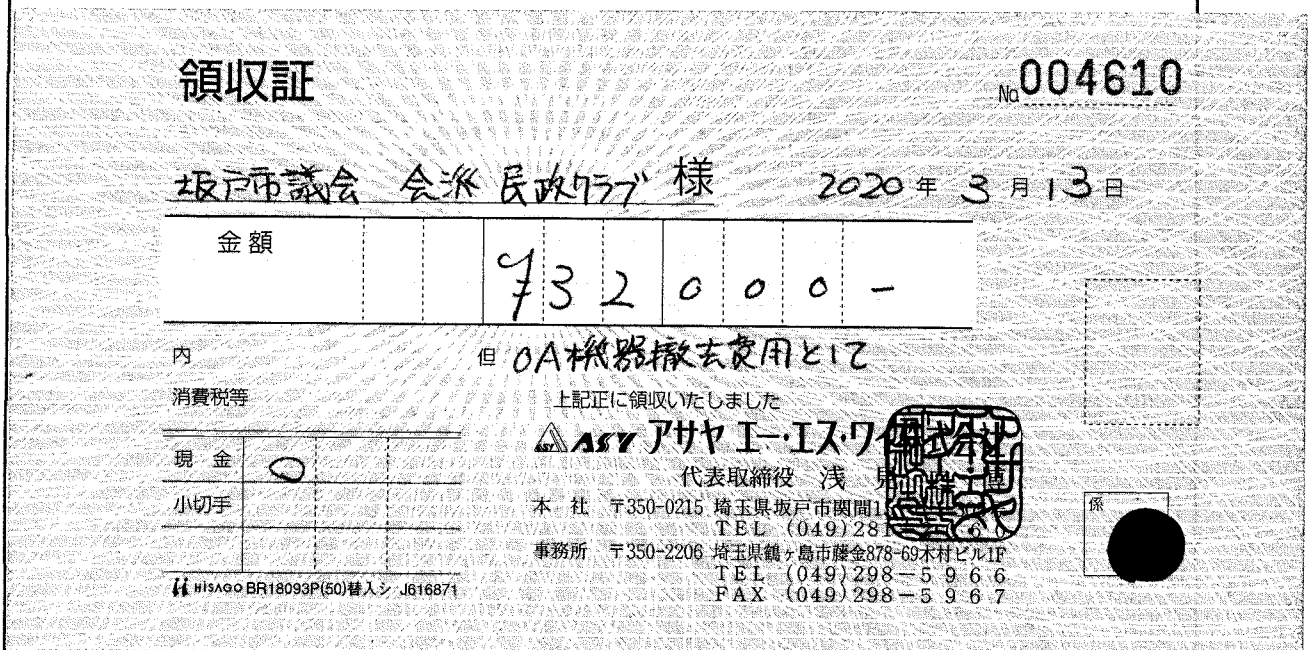 領収証
№004610
坂戸市議会 会派 民政クラブ 様 2020年 3月13日
金額 ¥32000-
内
但 OA機器撤去費用として
消費税等
上記正に領収いたしました
ASY アサヤ エー・エス・ワイ株式会社
現金 ○
代表取締役 浅
小切手
本社 〒350-0215 埼玉県坂戸市関間1
TEL (049)281
係
事務所 〒350-2206 埼玉県鶴ヶ島市藤金878-69木村ビル1F
TEL (049)298-5966
HISAGO BR18093P(50)替入シ J616871
FAX (049)298-5967